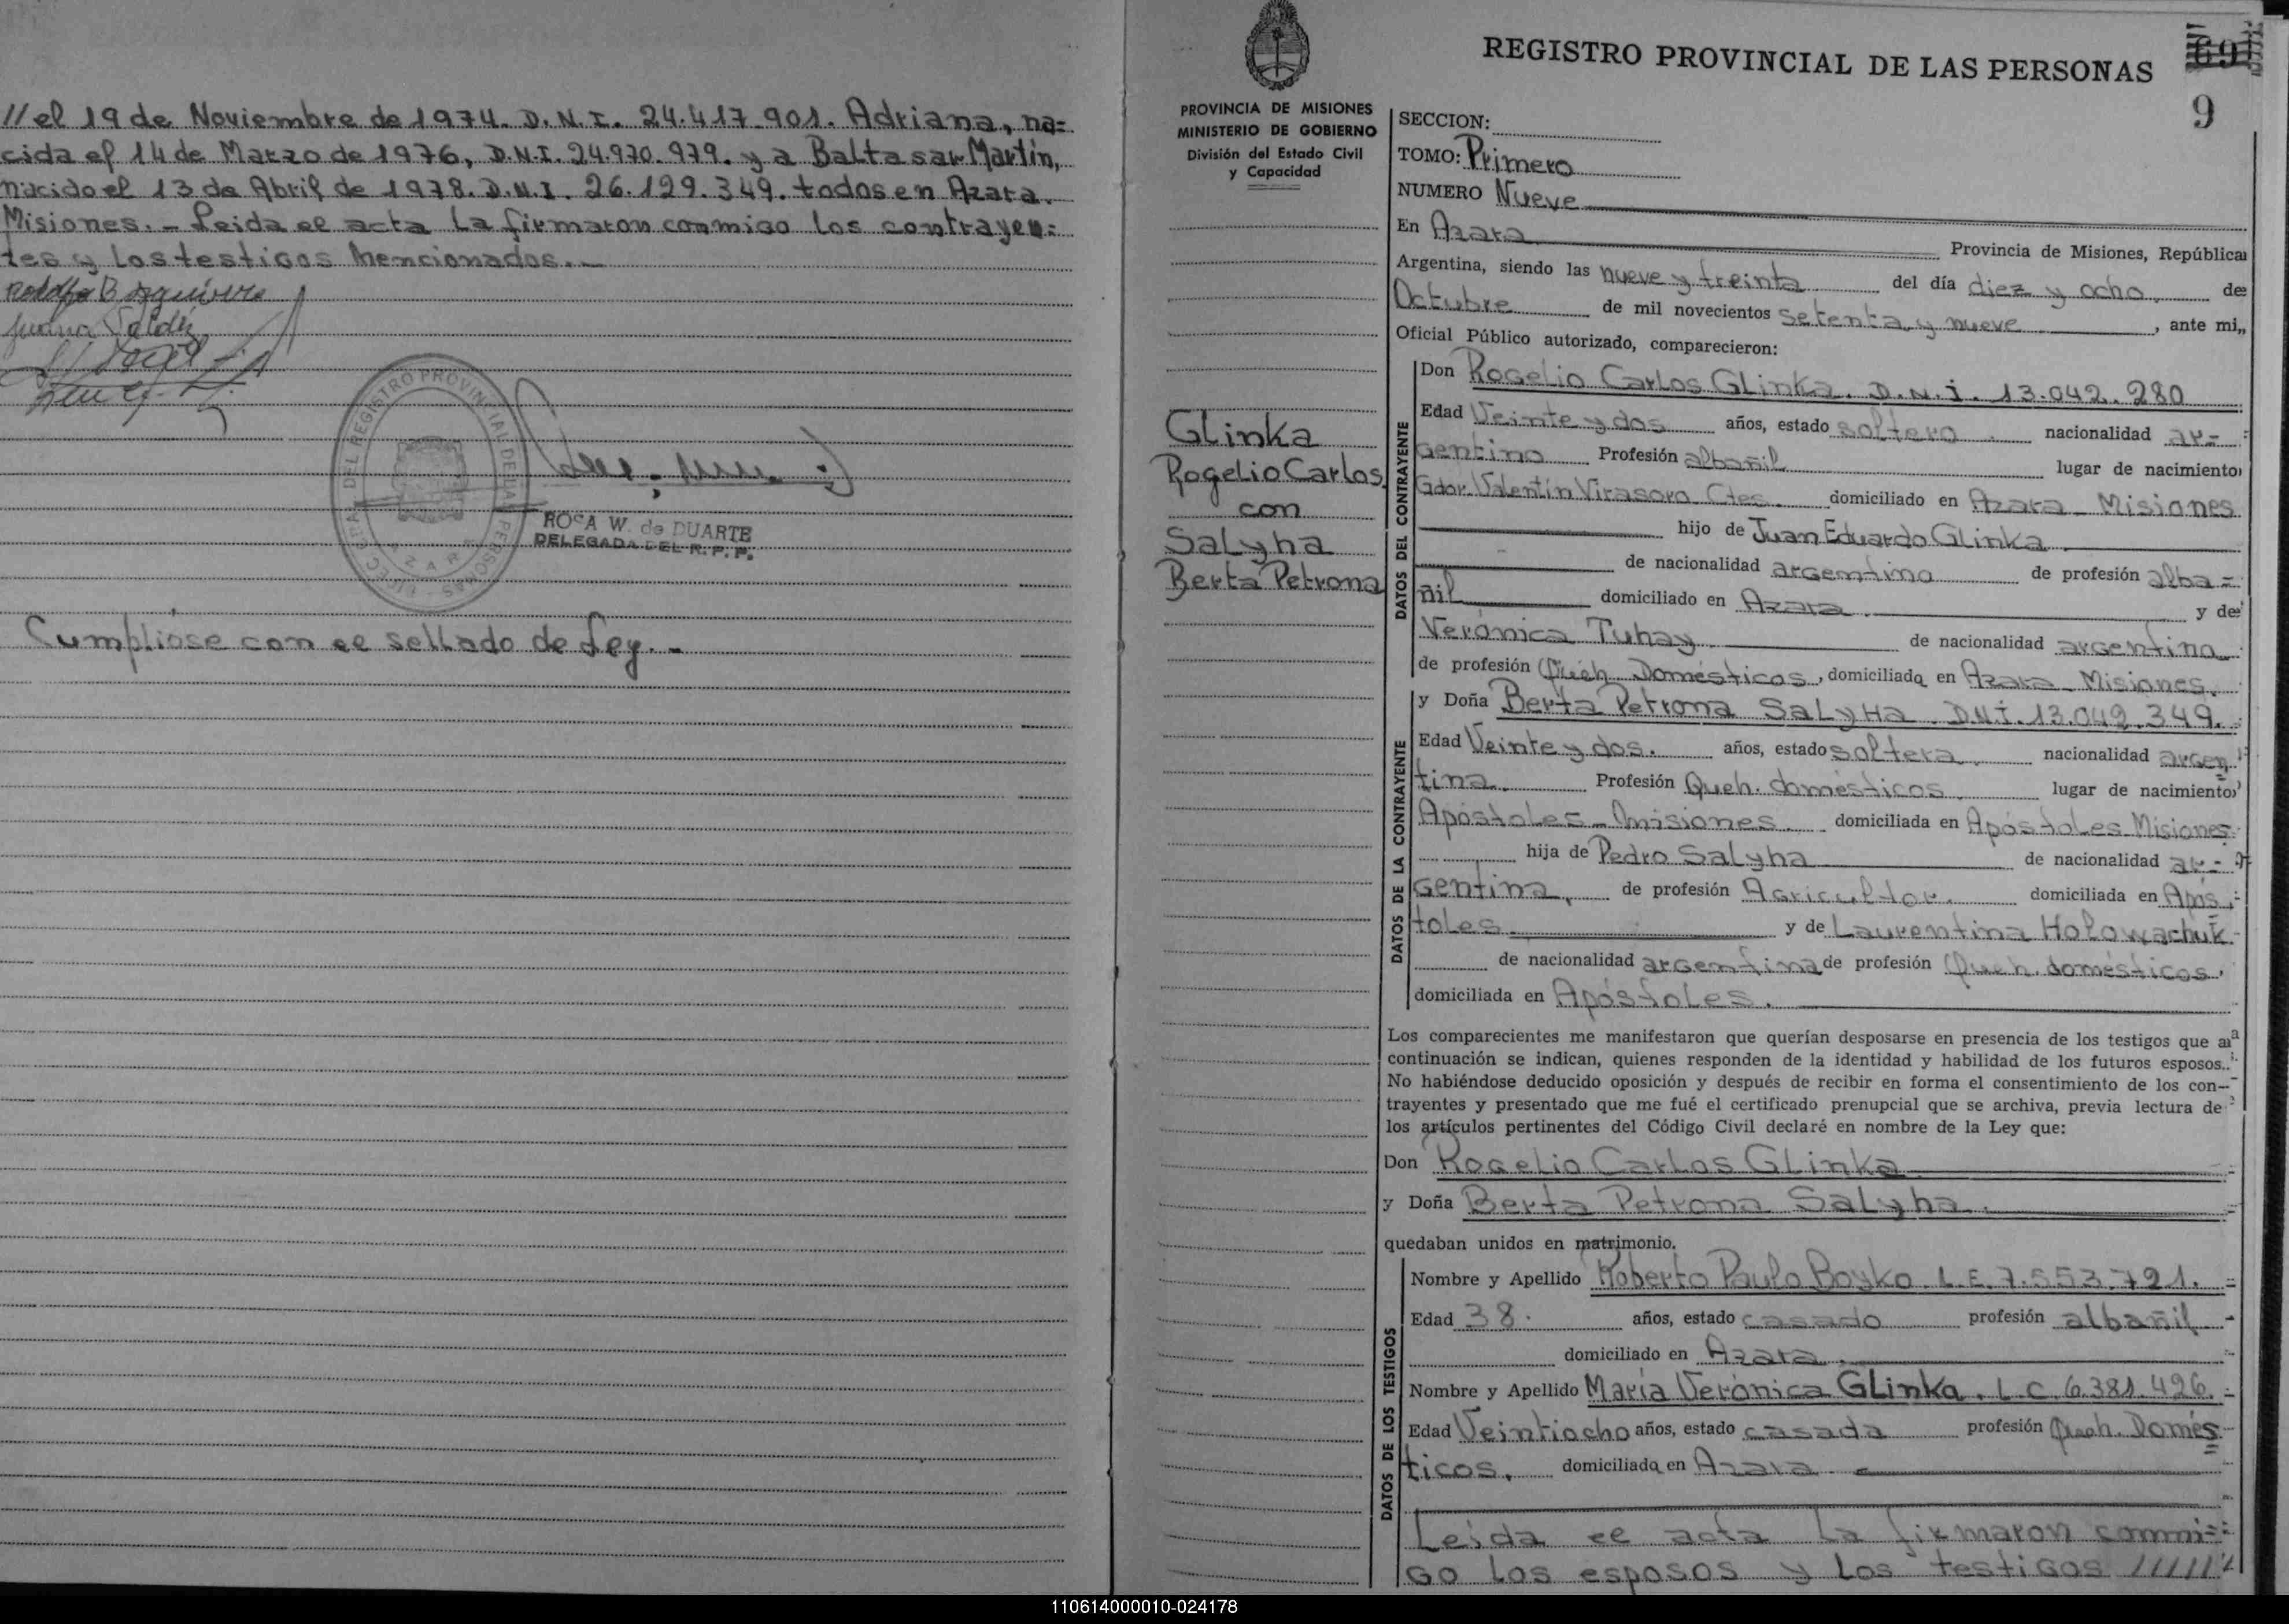 // el 19 de Noviembre de 1974. D.N.I. 24.417.901. Adriana, na=
cida el 14 de Marzo de 1976, D.N.I. 24.970.979. y a Baltasar Martín,
nacido el 13 de Abril de 1978. D.N.I. 26.129.349. todos en Azara.
Misiones. - Leida el acta la firmaron conmigo los contrayen=
tes y los testigos mencionados. -
ROSA W. de DUARTE
DELEGADA DEL R. P. P.
Cumplióse con el sellado de Ley. -
PROVINCIA DE MISIONES
MINISTERIO DE GOBIERNO
División del Estado Civil
y Capacidad
Glinka
Rogelio Carlos
con
Salyha
Berta Petrona
REGISTRO PROVINCIAL DE LAS PERSONAS
69
9
SECCION:
TOMO: Primero
NUMERO Nueve
En Azara Provincia de Misiones, República
Argentina, siendo las nueve y treinta del día diez y ocho de
Octubre de mil novecientos setenta y nueve, ante mi,
Oficial Público autorizado, comparecieron:
DATOS DEL CONTRAYENTE
Don Rogelio Carlos Glinka. D.N.I. 13.042.280
Edad Veinte y dos años, estado soltero. nacionalidad ar=
gentino Profesión albañil lugar de nacimiento
Gdor. Valentín Virasoro Ctes. domiciliado en Azara - Misiones
hijo de Juan Eduardo Glinka
de nacionalidad argentino de profesión alba=
ñil domiciliado en Azara y de
Verónica Tuhay de nacionalidad argentina
de profesión Queh. Domésticos, domiciliada en Azara - Misiones.
DATOS DE LA CONTRAYENTE
y Doña Berta Petrona SaLyHa. D.N.I. 13.042.349.
Edad Veinte y dos. años, estado soltera nacionalidad argen
tina. Profesión Queh. domésticos lugar de nacimiento
Apóstoles - Misiones domiciliada en Apóstoles Misiones
hija de Pedro Salyha de nacionalidad ar-
gentina, de profesión Agricultor. domiciliada en Após
toles y de Laurentina Holowachuk
de nacionalidad argentina de profesión Queh. domésticos,
domiciliada en Apóstoles.
Los comparecientes me manifestaron que querían desposarse en presencia de los testigos que a
continuación se indican, quienes responden de la identidad y habilidad de los futuros esposos.
No habiéndose deducido oposición y después de recibir en forma el consentimiento de los con-
trayentes y presentado que me fué el certificado prenupcial que se archiva, previa lectura de
los artículos pertinentes del Código Civil declaré en nombre de la Ley que:
Don Rogelio Carlos Glinka
y Doña Berta Petrona Salyha
quedaban unidos en matrimonio.
DATOS DE LOS TESTIGOS
Nombre y Apellido Roberto Paulo Boyko L.E. 7.553.721.
Edad 38. años, estado casado profesión albañil
domiciliado en Azara
Nombre y Apellido María Verónica Glinka. L.C. 6.381.426.
Edad Veintiocho años, estado casada profesión Queh. Domés
ticos, domiciliada en Azara
Leida el acta la firmaron conmi=
go los esposos y los testigos //////
110614000010-024178